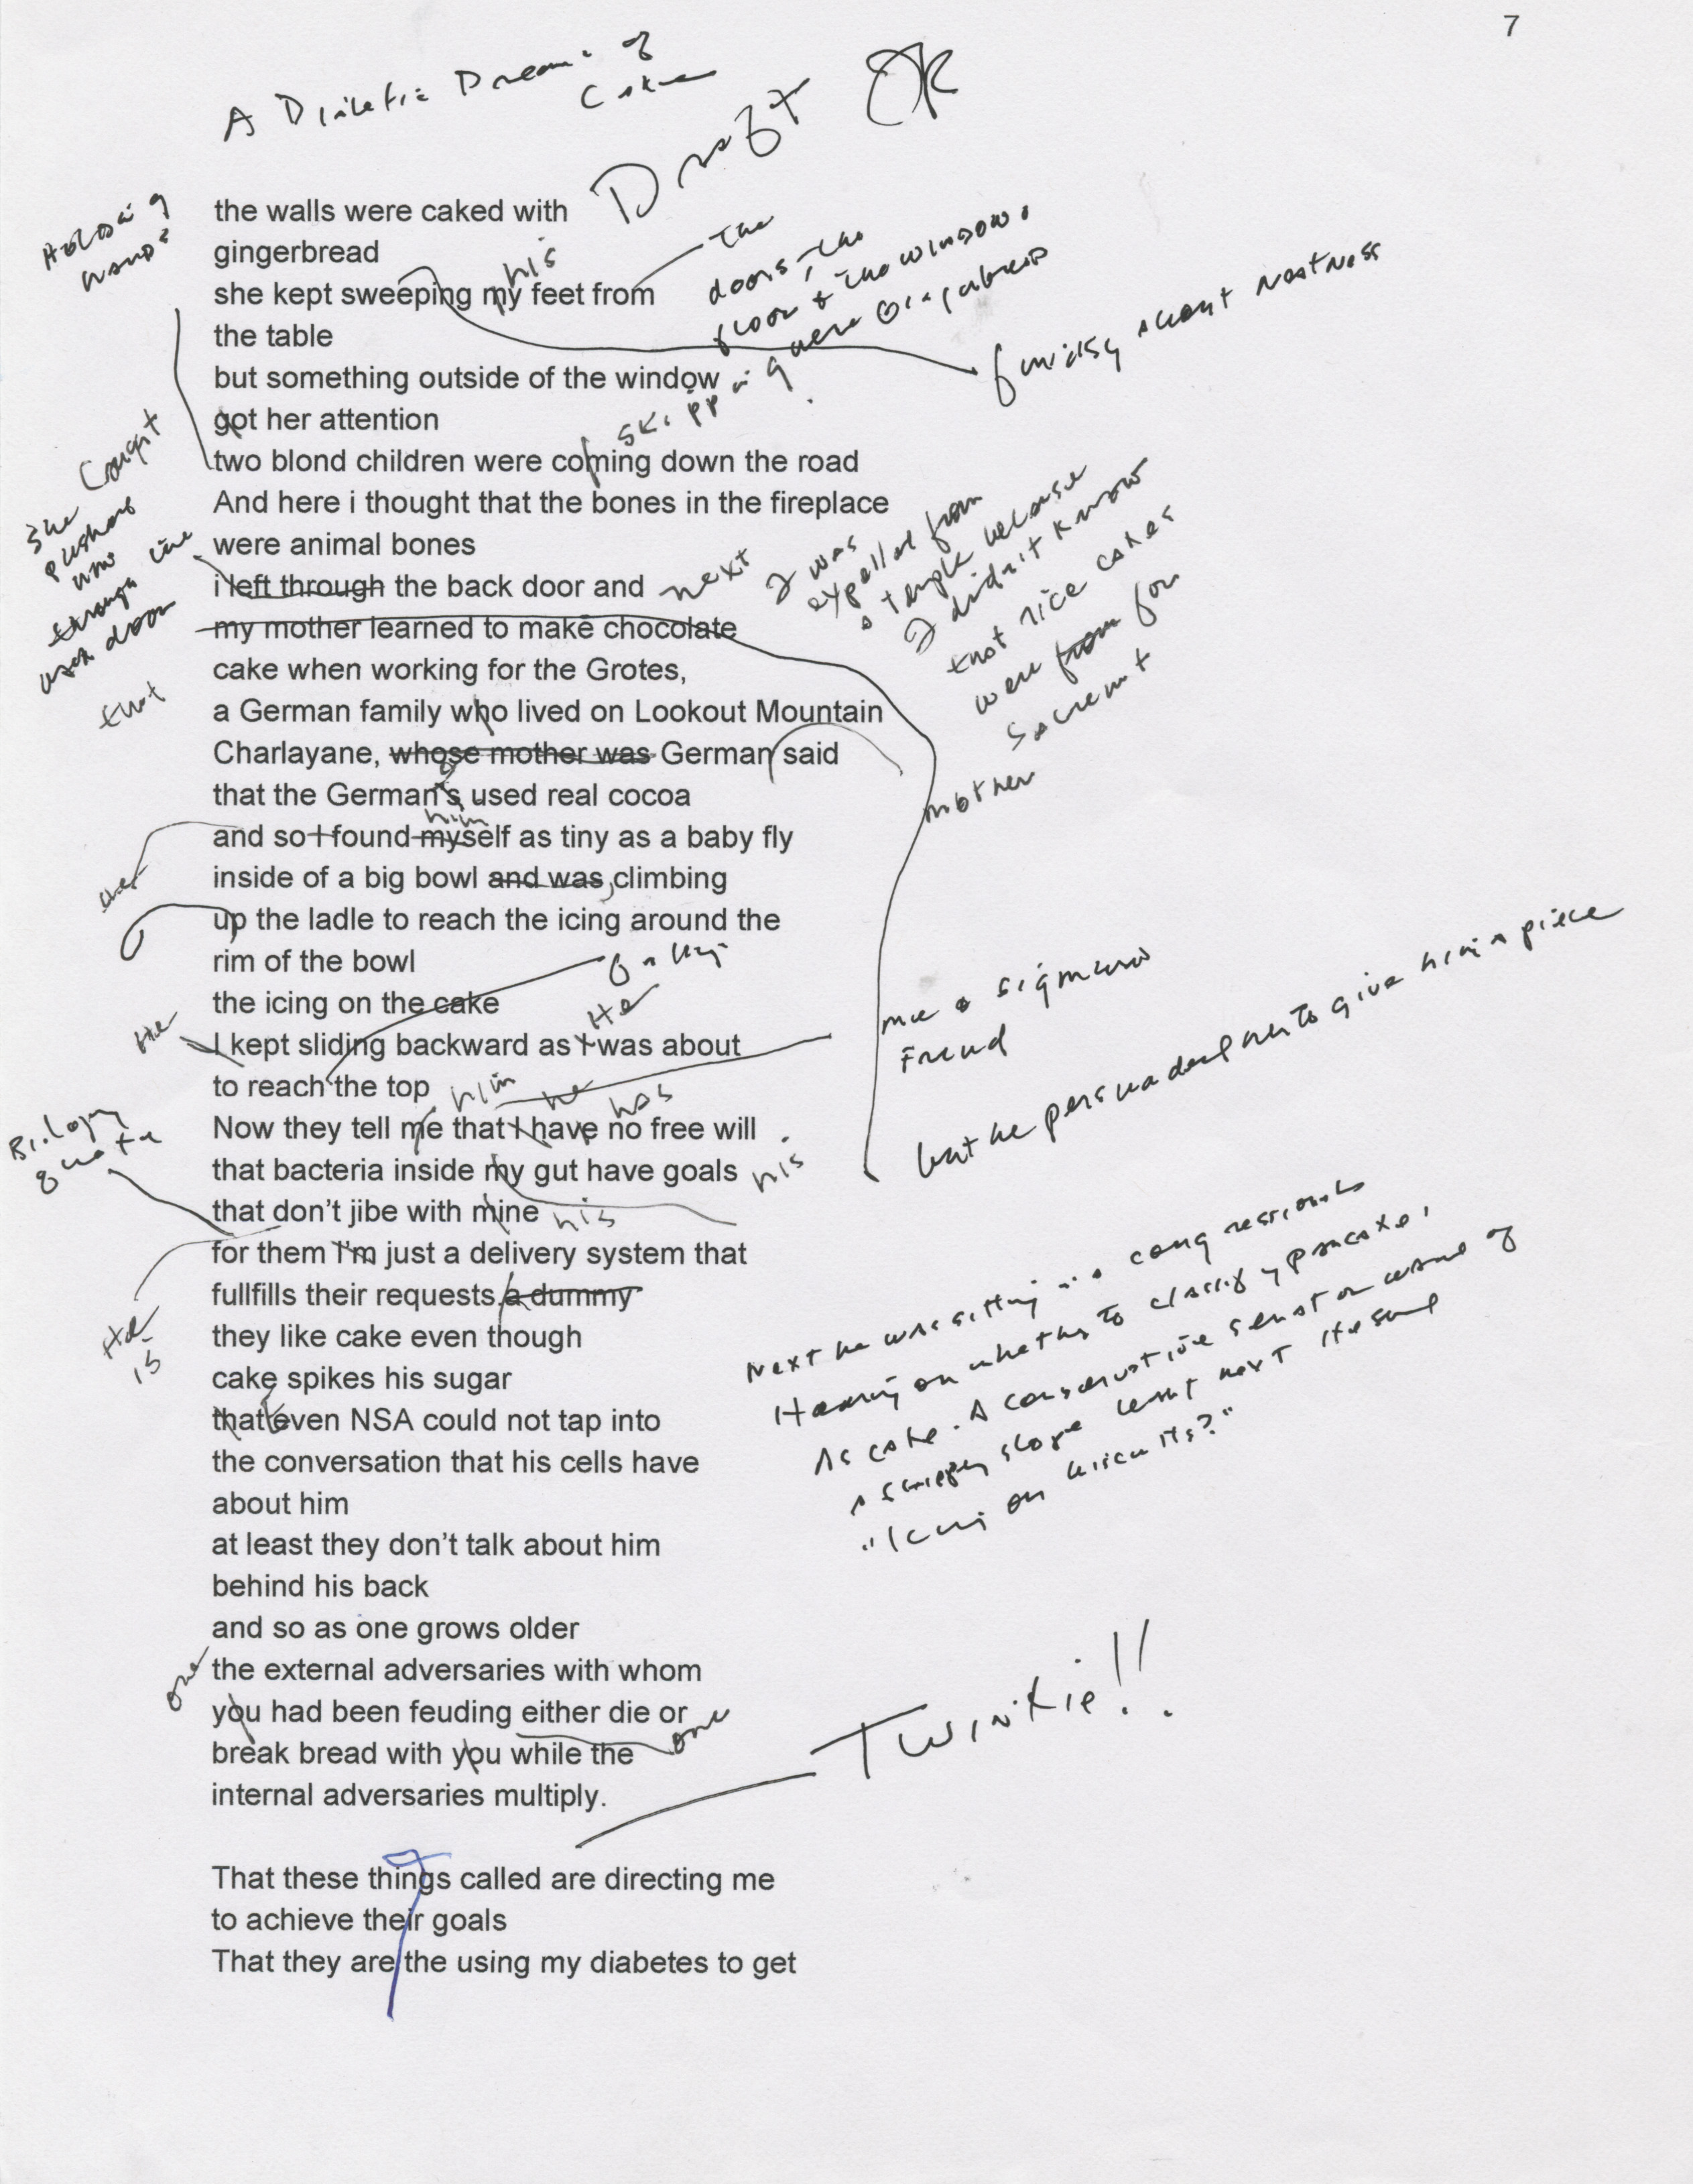 7
A Diabetic Dreams of
Cake
Draft
the walls were caked with
Holding
hands
gingerbread
his
The
doors, the
floor & the windows
were Gingerbread
she kept sweeping my feet from
the table
about neatness
but something outside of the window
got her attention
skipping
Caught
two blond children were coming down the road
And here i thought that the bones in the fireplace
were animal bones
She
pushes
him
through the
door
i left through the back door and
next
I was
expelled from
a temple because
I didn't know
that rice cakes
were from for
sacrament
my mother learned to make chocolate
cake when working for the Grotes,
that
a German family who lived on Lookout Mountain
Charlayane, whose mother was German said
mother
that the German's used real cocoa
him
and so I found myself as tiny as a baby fly
inside of a big bowl and was, climbing
up the ladle to reach the icing around the
rim of the bowl
the icing on the cake
He
He
I kept sliding backward as I was about
me a Sigmund
Freud
to reach the top
him
he
has
but he persuaded her to give him a piece
Now they tell me that I have no free will
Biology
quote
that bacteria inside my gut have goals
his
that don't jibe with mine
his
for them I'm just a delivery system that
He
is
fullfills their requests, a dummy
they like cake even though
cake spikes his sugar
that even NSA could not tap into
the conversation that his cells have
about him
Next he was sitting in a congressional
Hearing on whether to classify pancakes
As cake. A conservative senator warned of
a slippery slope what next He said
"Icing on biscuits?"
at least they don't talk about him
behind his back
and so as one grows older
the external adversaries with whom
one
you had been feuding either die or
one
break bread with you while the
internal adversaries multiply.
Twinkie!!
That these things called are directing me
to achieve their goals
That they are the using my diabetes to get